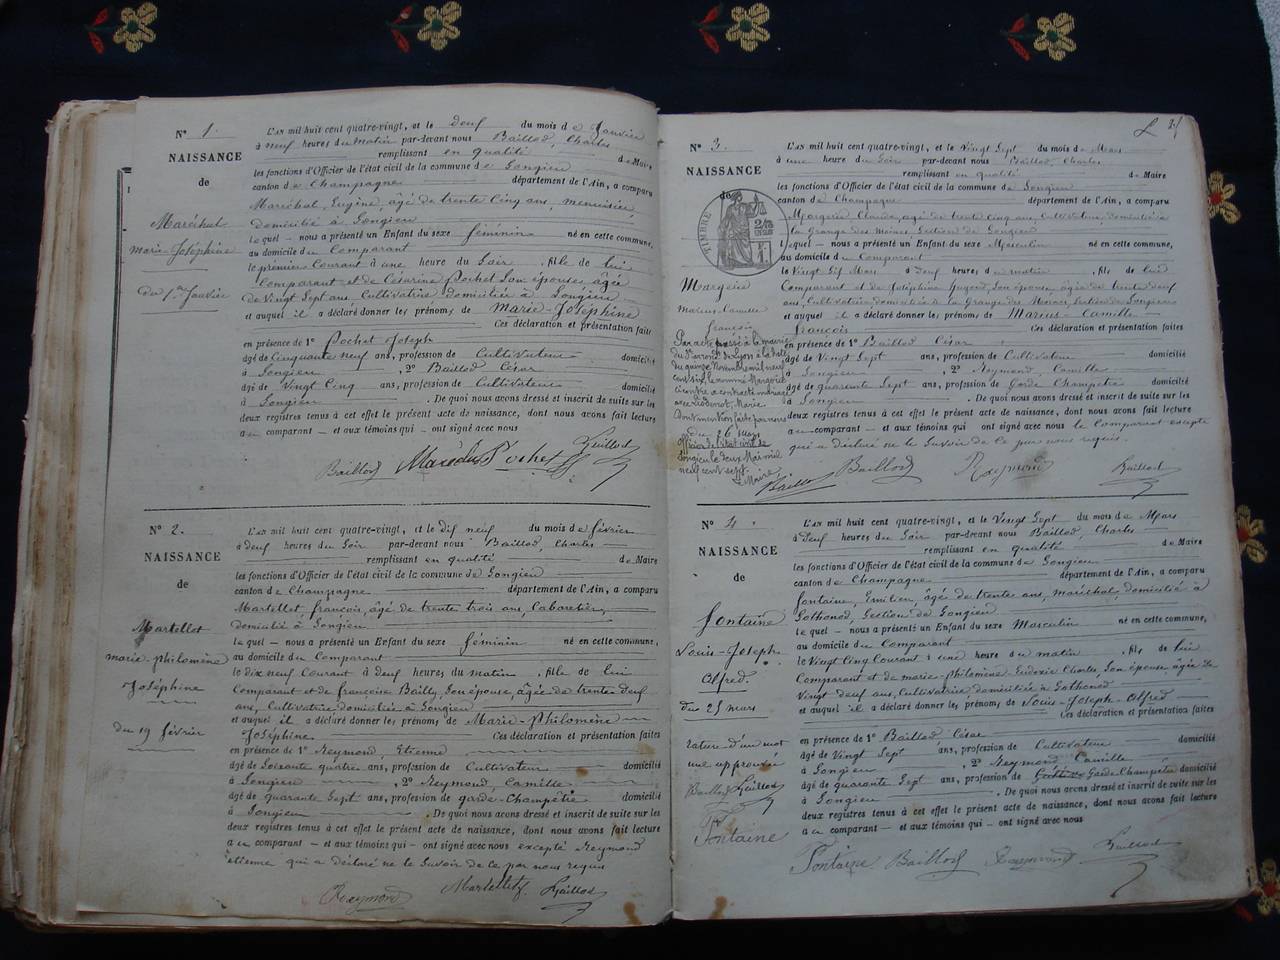 N° 1.
NAISSANCE
de
Maréchal
Marie Joséphine
du 1er Janvier
L'AN mil huit cent quatre-vingt, et le deux du mois de Janvier
à neuf heures du matin par-devant nous Baillod, Charles
remplissant en qualité de Maire
les fonctions d'Officier de l'état civil de la commune de Songieu
canton de Champagne département de l'Ain, a comparu
Maréchal, Eugène, âgé de trente Cinq ans, menuisier,
domicilié à Songieu
lequel — nous a présenté un Enfant du sexe féminin né en cette commune,
au domicile du Comparant
le premier Courant à une heure du Soir, fille de lui
Comparant et de Césarine Pochet Son épouse, âgée
de Vingt Sept ans, Cultivatrice domiciliée à Songieu
et auquel il a déclaré donner les prénoms de Marie-Joséphine
Ces déclaration et présentation faites
en présence de 1° Pochet Joseph
âgé de Cinquante neuf ans, profession de Cultivateur domicilié
à Songieu, 2° Baillod César
âgé de Vingt Cinq ans, profession de Cultivateur domicilié
à Songieu. De quoi nous avons dressé et inscrit de suite sur les
deux registres tenus à cet effet le présent acte de naissance, dont nous avons fait lecture
au comparant — et aux témoins qui ont signé avec nous
Baillod Maréchal Pochet Baillod
N° 2.
NAISSANCE
de
Martellet
marie-philomène
Joséphine
du 19 février
L'AN mil huit cent quatre-vingt, et le dix neuf du mois de février
à deux heures du Soir par-devant nous Baillod, Charles
remplissant en qualité de Maire
les fonctions d'Officier de l'état civil de la commune de Songieu
canton de Champagne département de l'Ain, a comparu
Martellet françois, âgé de trente trois ans, Cabaretier,
domicilié à Songieu
lequel — nous a présenté un Enfant du sexe féminin né en cette commune,
au domicile du Comparant
le dix neuf Courant à deux heures du matin, fille de lui
Comparant et de françoise Bailly, Son épouse, âgée de trente deux
ans, Cultivatrice domiciliée à Songieu
et auquel il a déclaré donner les prénoms de Marie-Philomène
Joséphine Ces déclaration et présentation faites
en présence de 1° Reymond, Etienne
âgé de Soixante quatre ans, profession de Cultivateur domicilié
à Songieu, 2° Reymond, Camille
âgé de quarante Sept ans, profession de garde-Champêtre domicilié
à Songieu. De quoi nous avons dressé et inscrit de suite sur les
deux registres tenus à cet effet le présent acte de naissance, dont nous avons fait lecture
au comparant — et aux témoins qui — ont signé avec nous excepté Reymond
etienne qui a déclaré ne le Savoir de ce par nous requis
Reymond Martellet Baillod
N° 3.
NAISSANCE
de
TIMBRE
Margerie
Marius-Camille
françois
Par acte passé à la mairie
du arrond. de Lyon à la date
du quinze Novembre mil neuf
cent six, le nommé Margerie
Marie
dont mention faite par nous
Officier de l'état civil de
Songieu le deux Mai mil
neuf cent sept.
Le Maire
Baillod
L'AN mil huit cent quatre-vingt, et le Vingt Sept du mois de Mars
à une heure du Soir par-devant nous Baillod, Charles
remplissant en qualité de Maire
les fonctions d'Officier de l'état civil de la commune de Songieu
canton de Champagne département de l'Ain, a comparu
Margerie Claude, âgé de trente Cinq ans, Cultivateur, domicilié à
la Grange des moines Section de Songieu
lequel — nous a présenté un Enfant du sexe Masculin né en cette commune,
au domicile du Comparant
le Vingt Six Mars à deux heures du matin, fils de lui
Comparant et de Joséphine Son épouse, âgée de trente deux
ans, Cultivatrice, domiciliée à la Grange des Moines, Section de Songieu
et auquel il a déclaré donner les prénoms de Marius-Camille
françois Ces déclaration et présentation faites
en présence de 1° Baillod César
âgé de Vingt Sept ans, profession de Cultivateur domicilié
à Songieu, 2° Reymond, Camille
âgé de quarante Sept ans, profession de Garde Champêtre domicilié
à Songieu. De quoi nous avons dressé et inscrit de suite sur les
deux registres tenus à cet effet le présent acte de naissance, dont nous avons fait lecture
au comparant — et aux témoins qui ont signé avec nous le Comparant excepté
qui a déclaré ne le Savoir de ce par nous requis
Baillod Reymond Baillod
N° 4.
NAISSANCE
de
fontaine
Louis-Joseph
Alfred
du 25 mars
rature d'un mot
une approuvée
Baillod Baillod
Fontaine
L'AN mil huit cent quatre-vingt, et le Vingt Sept du mois de Mars
à deux heures du Soir par-devant nous Baillod, Charles
remplissant en qualité de Maire
les fonctions d'Officier de l'état civil de la commune de Songieu
canton de Champagne département de l'Ain, a comparu
fontaine, Emilien, âgé de trente ans, maréchal, domicilié à
Gothonod, Section de Songieu
lequel — nous a présenté un Enfant du sexe Masculin né en cette commune,
au domicile du Comparant
le Vingt Cinq Courant à une heure du matin, fils de lui
Comparant et de marie-philomène Charlet, Son épouse, âgée de
Vingt deux ans, Cultivatrice, domiciliée à Gothonod
et auquel il a déclaré donner les prénoms de Louis-Joseph-Alfred
Ces déclaration et présentation faites
en présence de 1° Baillod César
âgé de Vingt Sept ans, profession de Cultivateur domicilié
à Songieu, 2° Reymond Camille
âgé de quarante Sept ans, profession de Garde Champêtre domicilié
à Songieu. De quoi nous avons dressé et inscrit de suite sur les
deux registres tenus à cet effet le présent acte de naissance, dont nous avons fait lecture
au comparant — et aux témoins qui — ont signé avec nous
Fontaine Baillod Reymond Baillod